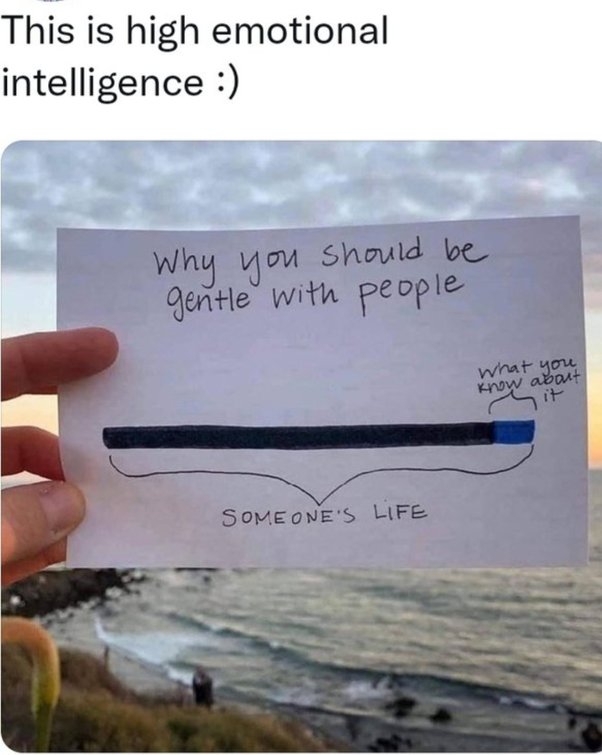 This is high emotional
intelligence :)
Why you should be
gentle with people
what you
know about
it
SOMEONE'S LIFE